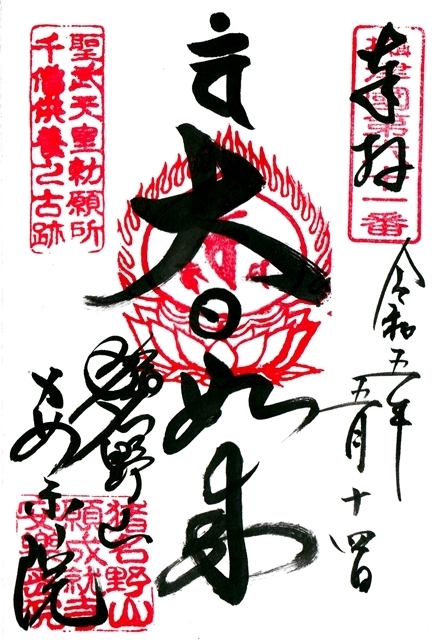 奉拝
摂津國第
一番
令和五年
五月十四日
大日如来
聖武天皇勅願所
千僧供養之古跡
猪名野山
安楽院
猪名野山
願成就寺